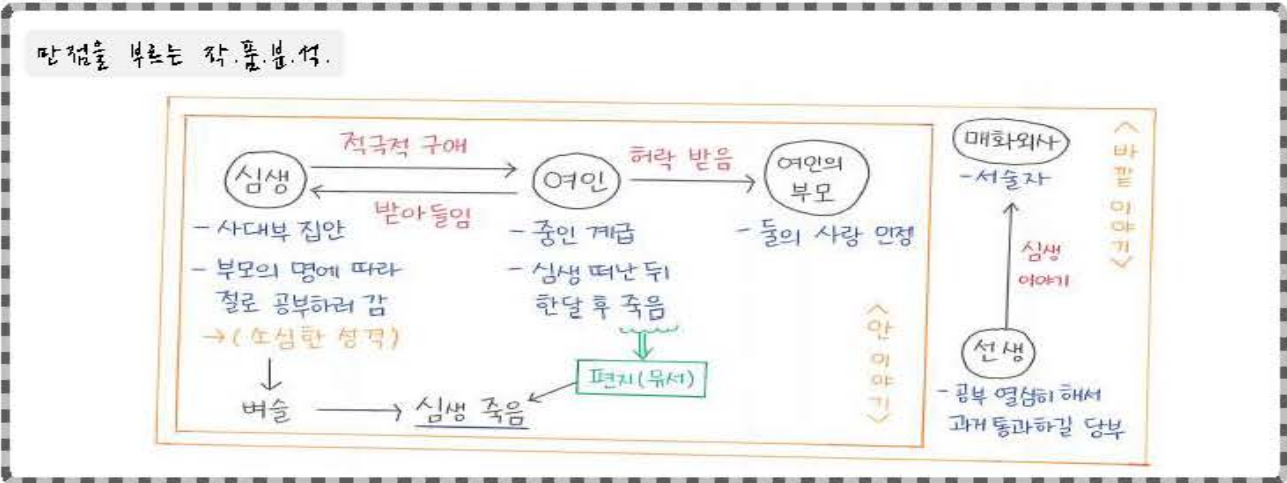 만점을 부르는 작.품.분.석.
심생
적극적 구애
받아들임
여인
허락 받음
여인의
부모
- 사대부 집안
- 부모의 명에 따라
절로 공부하러 감
→(소심한 성격)
벼슬
심생 죽음
- 중인 계급
- 심생 떠난 뒤
한달 후 죽음
편지(유서)
- 둘의 사랑 인정
<안 이야기>
매화외사
- 서술자
심생
이야기
선생
- 공부 열심히 해서
과거 통과하길 당부
<바깥 이야기>